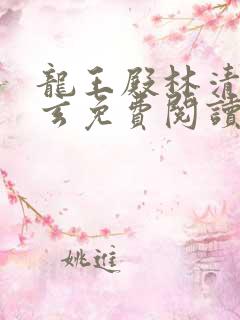 龍王殿林清
玄免費閱讀
姚進